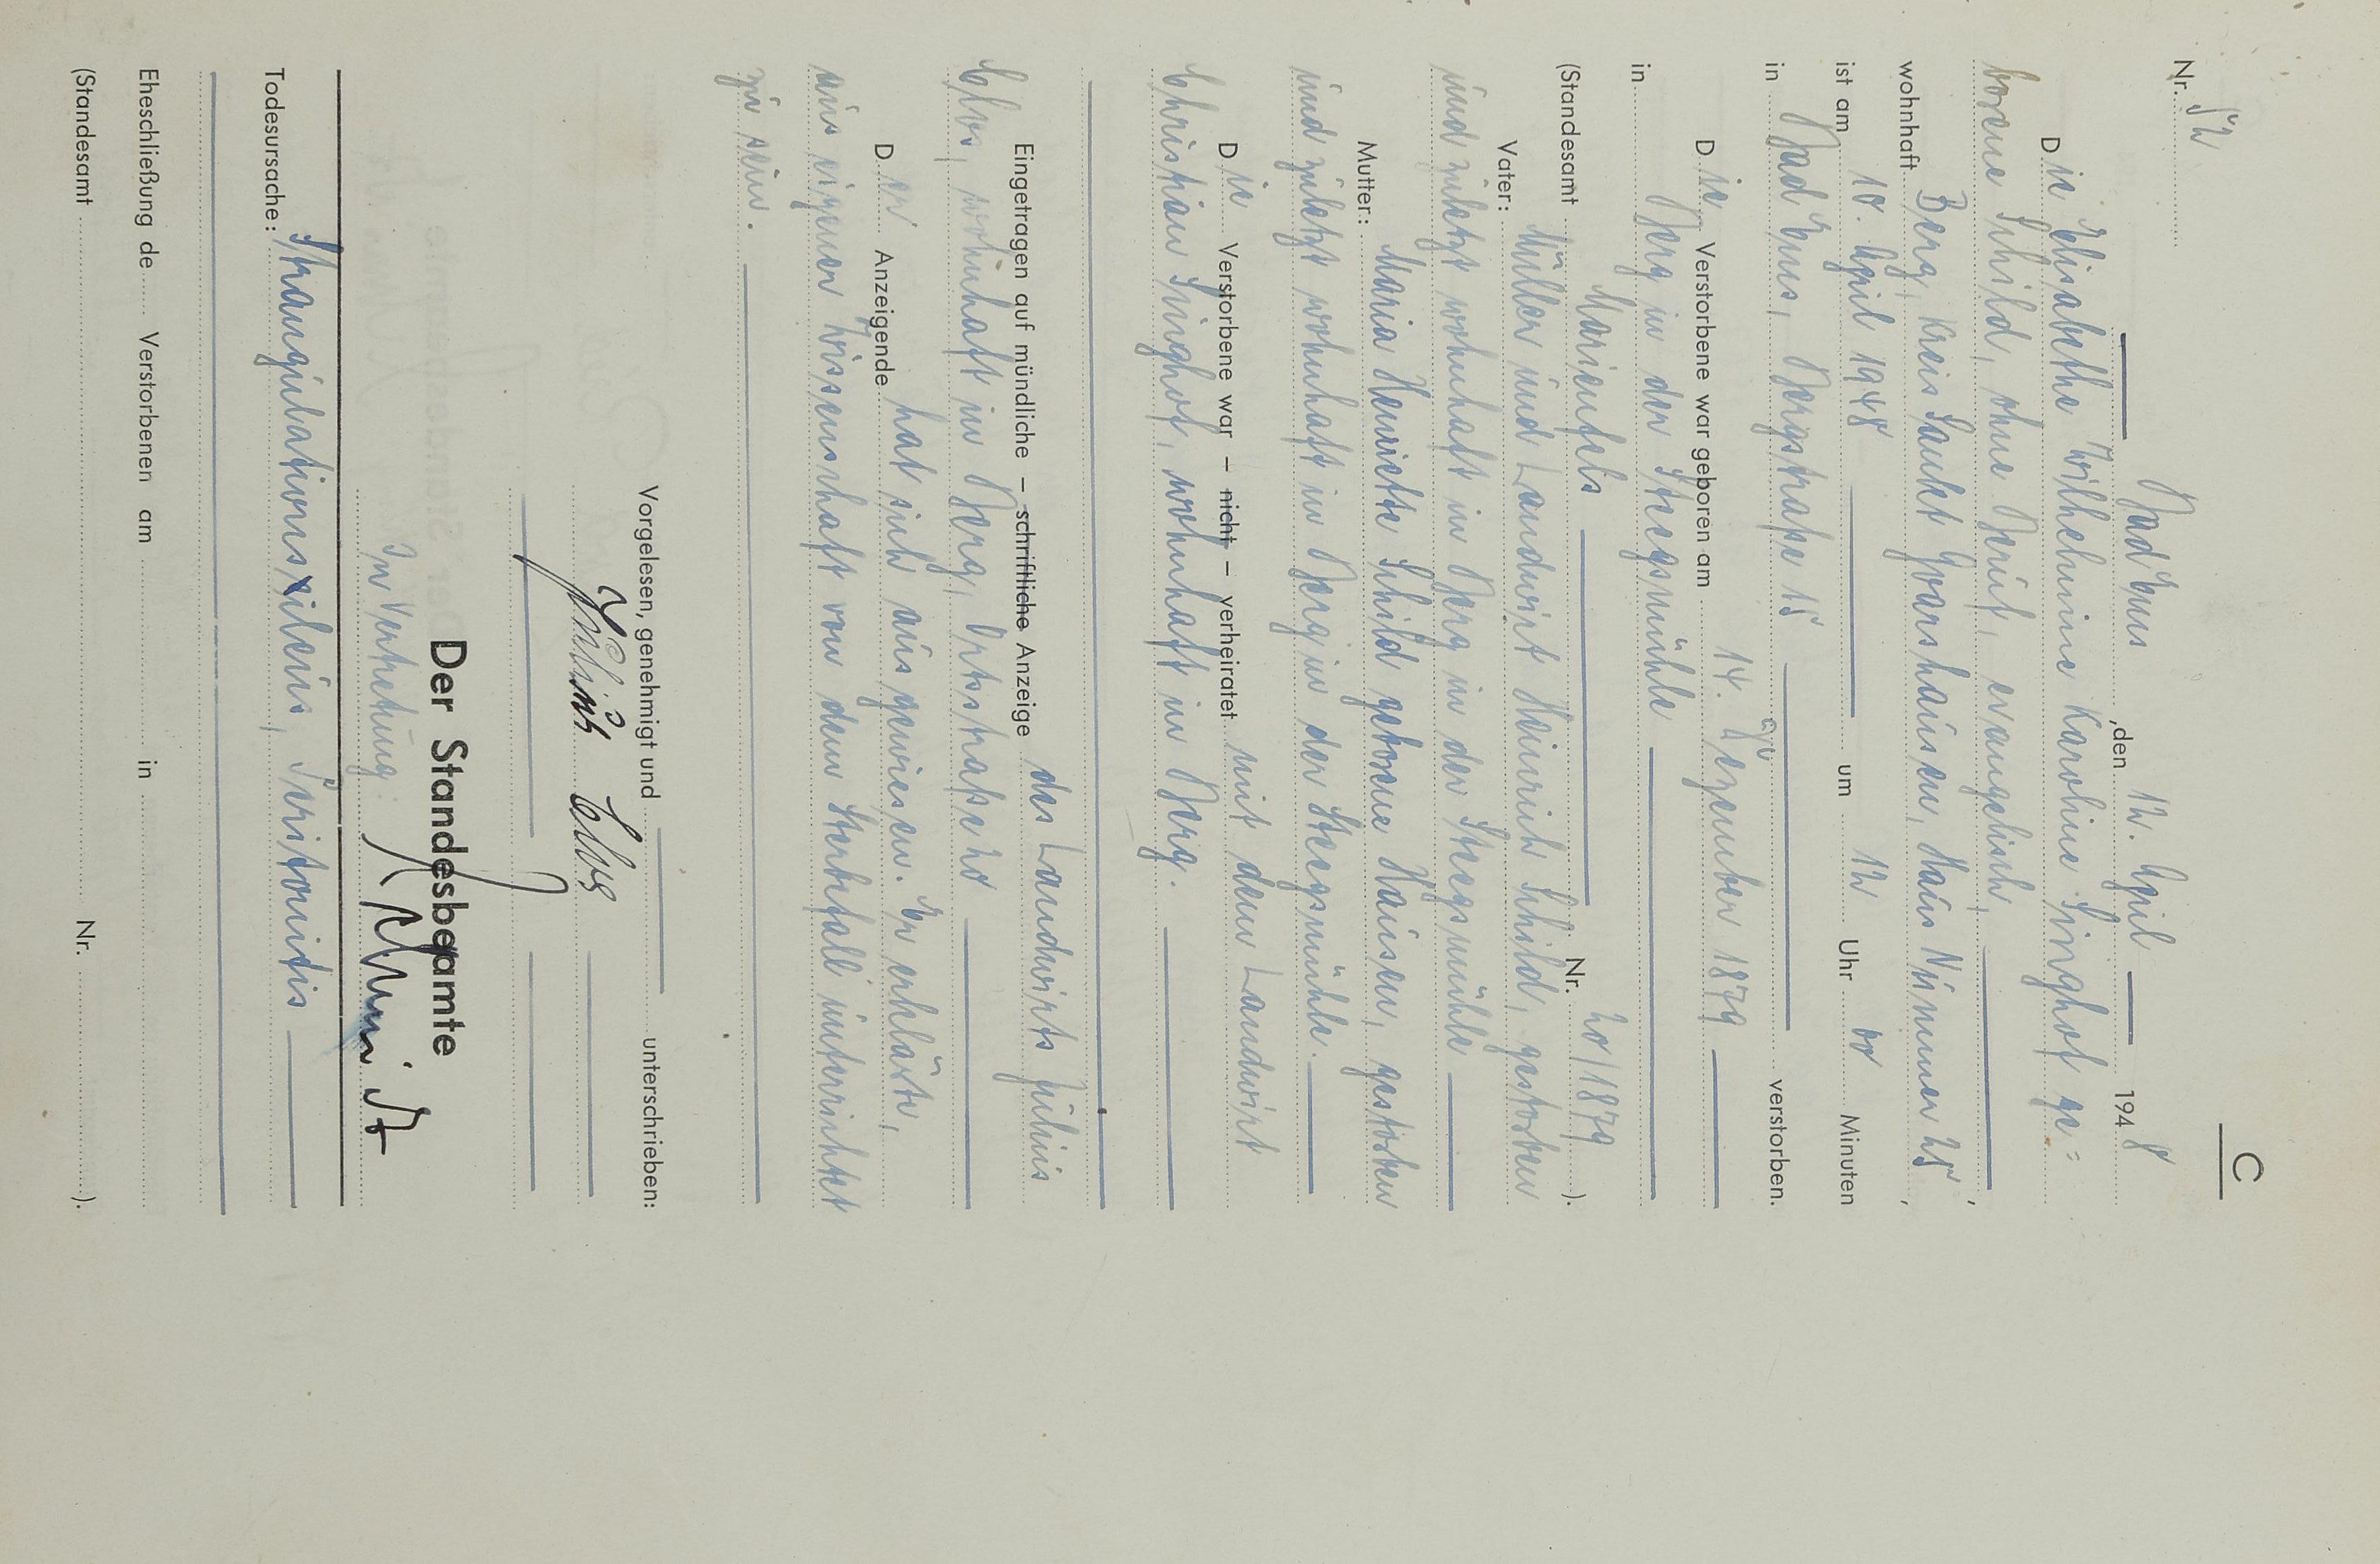 C
Nr. 52
Bad Ems, den 12. April 1948
Die Elisabethe Wilhelmine Karoline Singhof ge=
borene Schild, ohne Beruf, evangelisch,
wohnhaft Berg, Kreis Sankt Goarshausen, Haus Nummer 25,
ist am 10. April 1948 um 12 Uhr 00 Minuten
in Bad Ems, Bergstraße 15 verstorben.
Die Verstorbene war geboren am 14. Dezember 1879
in Berg in der Steegsmühle
(Standesamt Marienfels Nr. 20/1879).
Vater: Müller und Landwirt Heinrich Schild, gestorben
und zuletzt wohnhaft in Berg in der Steegsmühle
Mutter: Maria Henriette Schild geborene Hausen, gestorben
und zuletzt wohnhaft in Berg in der Steegsmühle.
Die Verstorbene war – nicht – verheiratet mit dem Landwirt
Christian Singhof, wohnhaft in Berg.
Eingetragen auf mündliche – schriftliche Anzeige des Landwirts Julius
wohnhaft in Berg, Ortsstraße 20
Der Anzeigende hat sich ausgewiesen. Er erklärte,
aus eigener Wissenschaft von dem Sterbefall unterrichtet
zu sein.
Vorgelesen, genehmigt und unterschrieben:
Julius
Der Standesbeamte
In Vertretung:
Todesursache: Strangulationsileus, Peritonitis
Eheschließung de Verstorbenen am in
(Standesamt Nr. ).